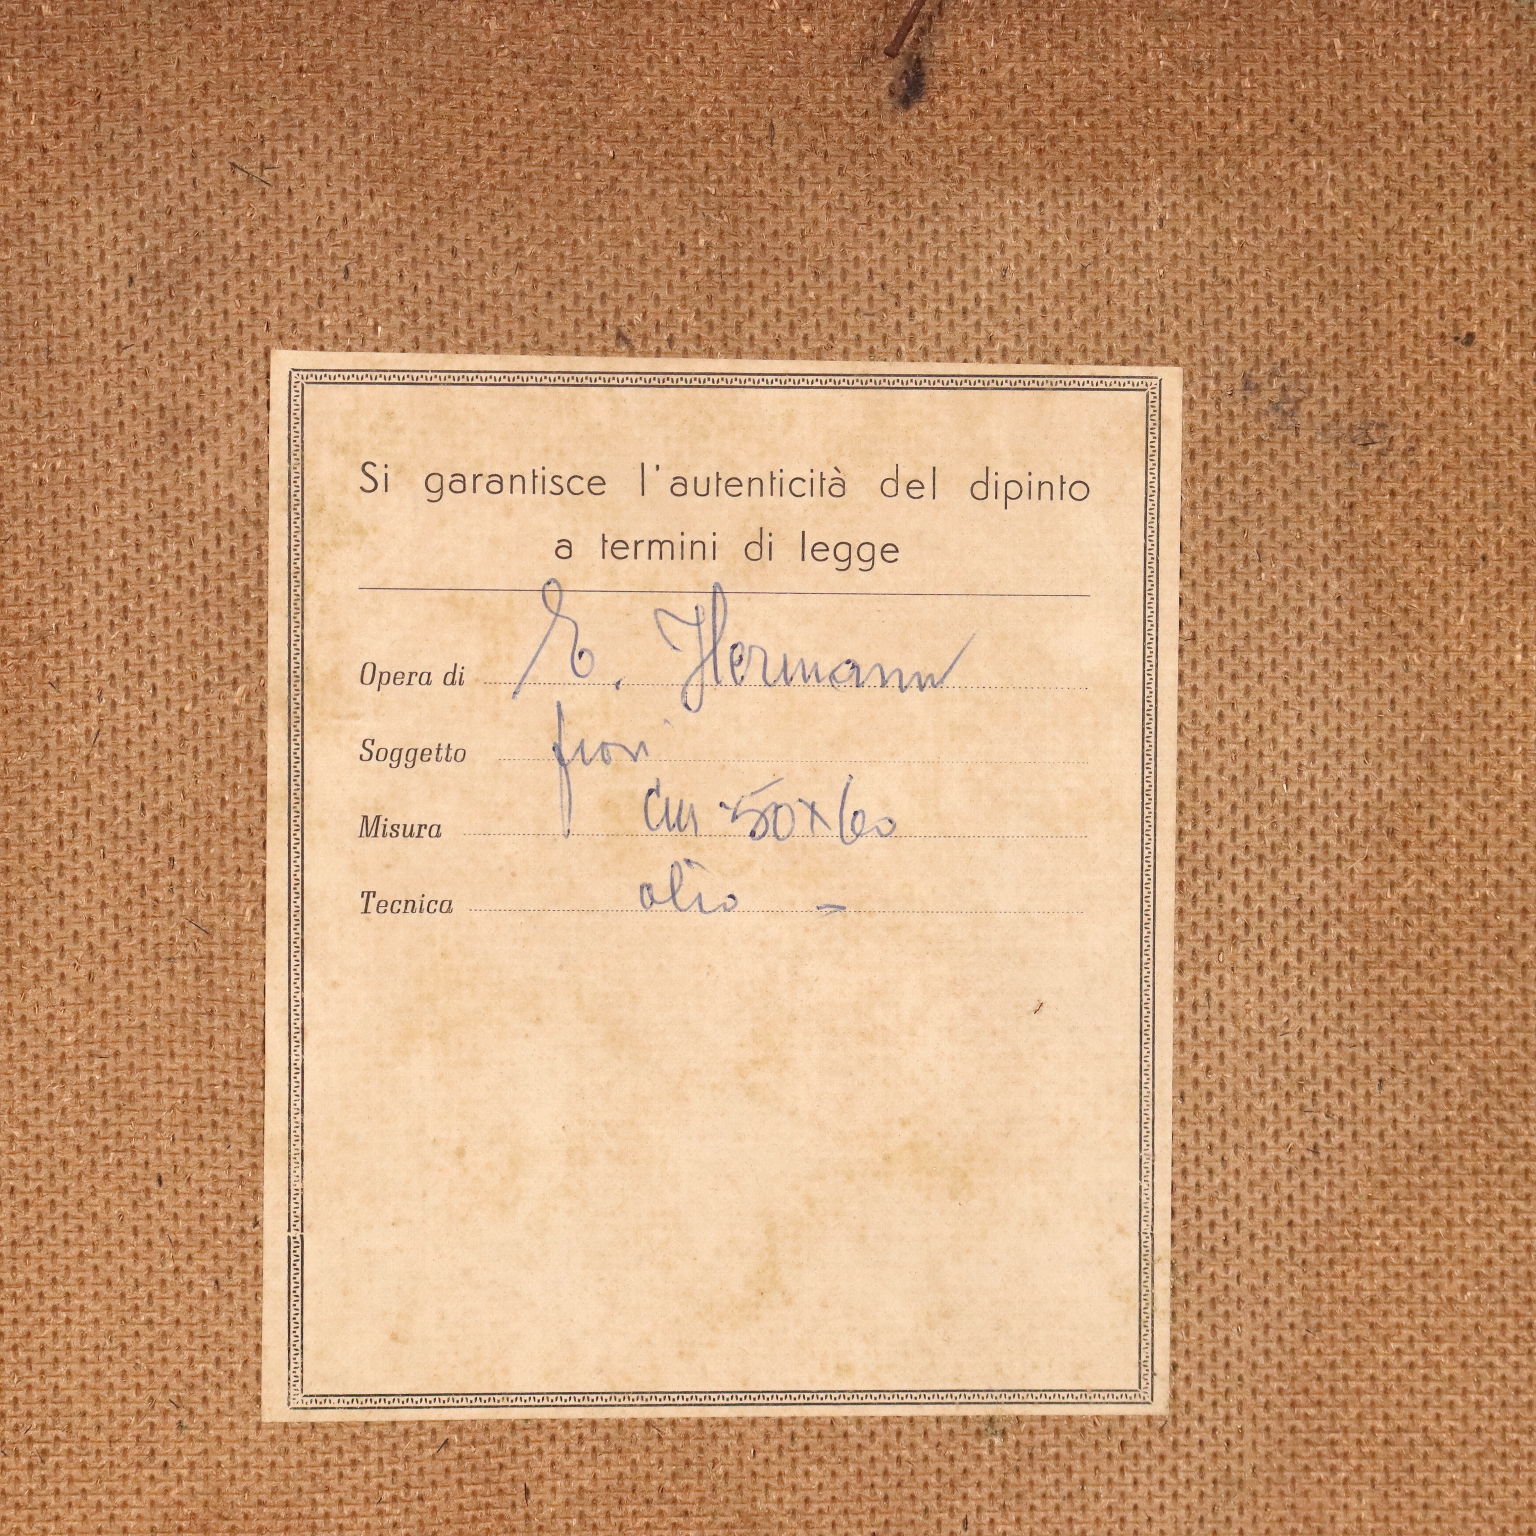 Si garantisce l'autenticità del dipinto
a termini di legge
Opera di E. Hermann
Soggetto fiori
Misura cm 50x60
Tecnica olio -